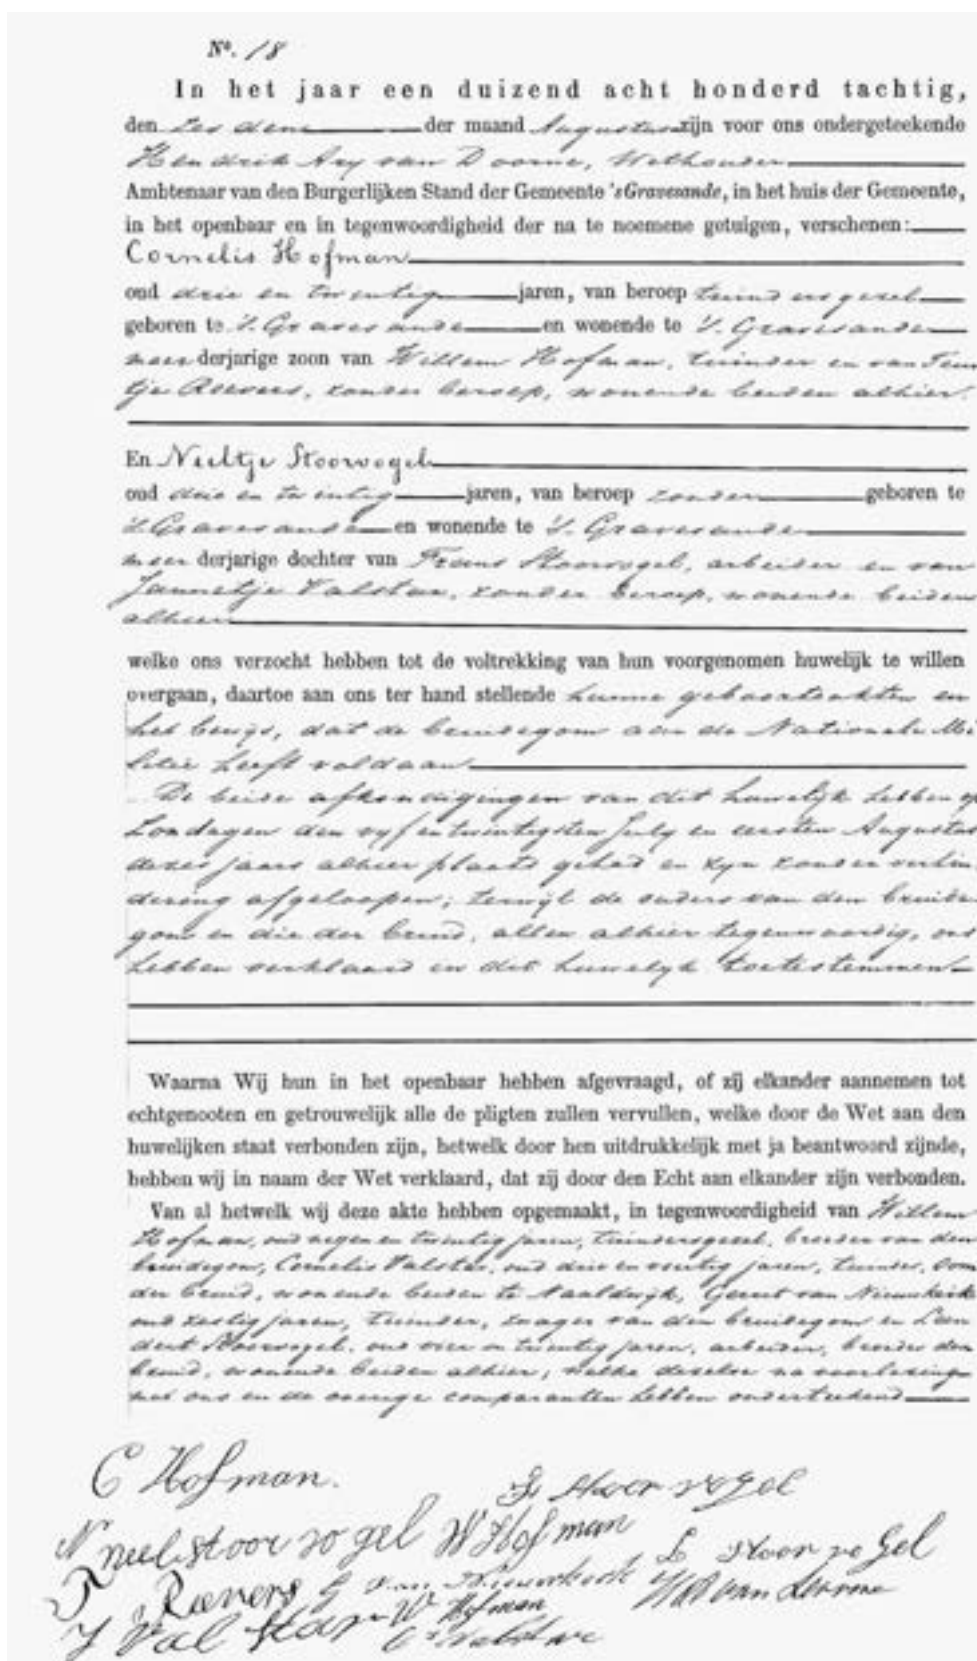 No. 18
In het jaar een duizend acht honderd tachtig,
den zesden der maand Augustus zijn voor ons ondergeteekende
Hendrik Ary van Doorne, Wethouder
Ambtenaar van den Burgerlijken Stand der Gemeente 's Gravesande, in het huis der Gemeente,
in het openbaar en in tegenwoordigheid der na te noemene getuigen, verschenen:
Cornelis Hofman
oud drie en twintig jaren, van beroep tuindersgezel
geboren te 's Gravesande en wonende te 's Gravesande
meerderjarige zoon van Willem Hofman, tuinder en van Teun
tje Roevers, zonder beroep, wonende beiden alhier.
En Neeltje Stoorvogel
oud drie en twintig jaren, van beroep zonder geboren te
's Gravesande en wonende te 's Gravesande
meerderjarige dochter van Frans Stoorvogel, arbeider en van
Jannetje Valstar, zonder beroep, wonende beiden
alhier
welke ons verzocht hebben tot de voltrekking van hun voorgenomen huwelijk te willen
overgaan, daartoe aan ons ter hand stellende hunne geboorteakten en
het bewijs, dat de bruidegom aan de Nationale Mi
litie heeft voldaan
De beide afkondigingen van dit huwelijk hebben op
Zondagen den vyf en twintigsten July en eersten Augustus
dezes jaars alhier plaats gehad en zyn zonder verhin
dering afgeloopen; terwijl de ouders van den bruide
gom en die der bruid, allen alhier tegenwoordig, ons
hebben verklaard in dit huwelyk toetestemmen
Waarna Wij hun in het openbaar hebben afgevraagd, of zij elkander aannemen tot
echtgenooten en getrouwelijk alle de pligten zullen vervullen, welke door de Wet aan den
huwelijken staat verbonden zijn, hetwelk door hen uitdrukkelijk met ja beantwoord zijnde,
hebben wij in naam der Wet verklaard, dat zij door den Echt aan elkander zijn verbonden.
Van al hetwelk wij deze akte hebben opgemaakt, in tegenwoordigheid van Willem
Hofman, oud negen en twintig jaren, tuindersgezel, broeder van den
bruidegom, Cornelis Valstar, oud drie en veertig jaren, tuinder, oom
der bruid, wonende beiden te Naaldwijk, Gerrit van Nieuwkerk
oud zestig jaren, tuinder, zwager van den bruidegom en Leen
dert Stoorvogel, oud vier en twintig jaren, arbeider, broeder der
bruid, wonende beiden alhier, welke dezelve na voorlezing
met ons en de overige comparanten hebben onderteekend
C Hofman.
F Stoorvogel
N neelstoorvogel W Hofman
L Stoorvogel
T Roevers G van Nieuwkerk
HA van Doorne
J Valstar W Hofman
C Valstar